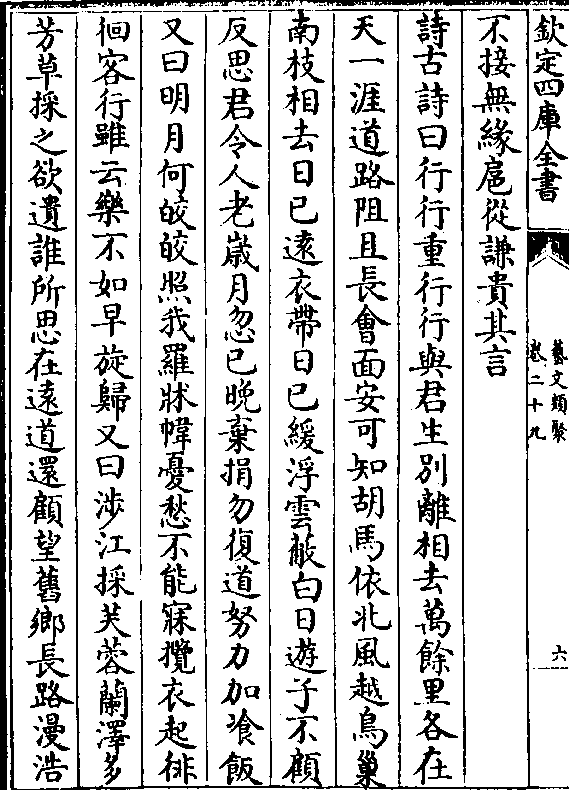 欽定四庫全書
藝文類聚
卷二十九
六
不接無緣扈從謙貴其言
詩古詩曰行行重行行與君生別離相去萬餘里各在
天一涯道路阻且長會面安可知胡馬依北風越鳥巢
南枝相去日已遠衣帶日已緩浮雲蔽白日遊子不顧
反思君令人老嵗月忽已晚棄捐勿復道努力加飡飯
又曰明月何皎皎照我羅牀幃憂愁不能寐攬衣起徘
徊客行雖云樂不如早旋歸又曰涉江採芙蓉蘭澤多
芳草採之欲遺誰所思在遠道還顧望舊鄉長路漫浩